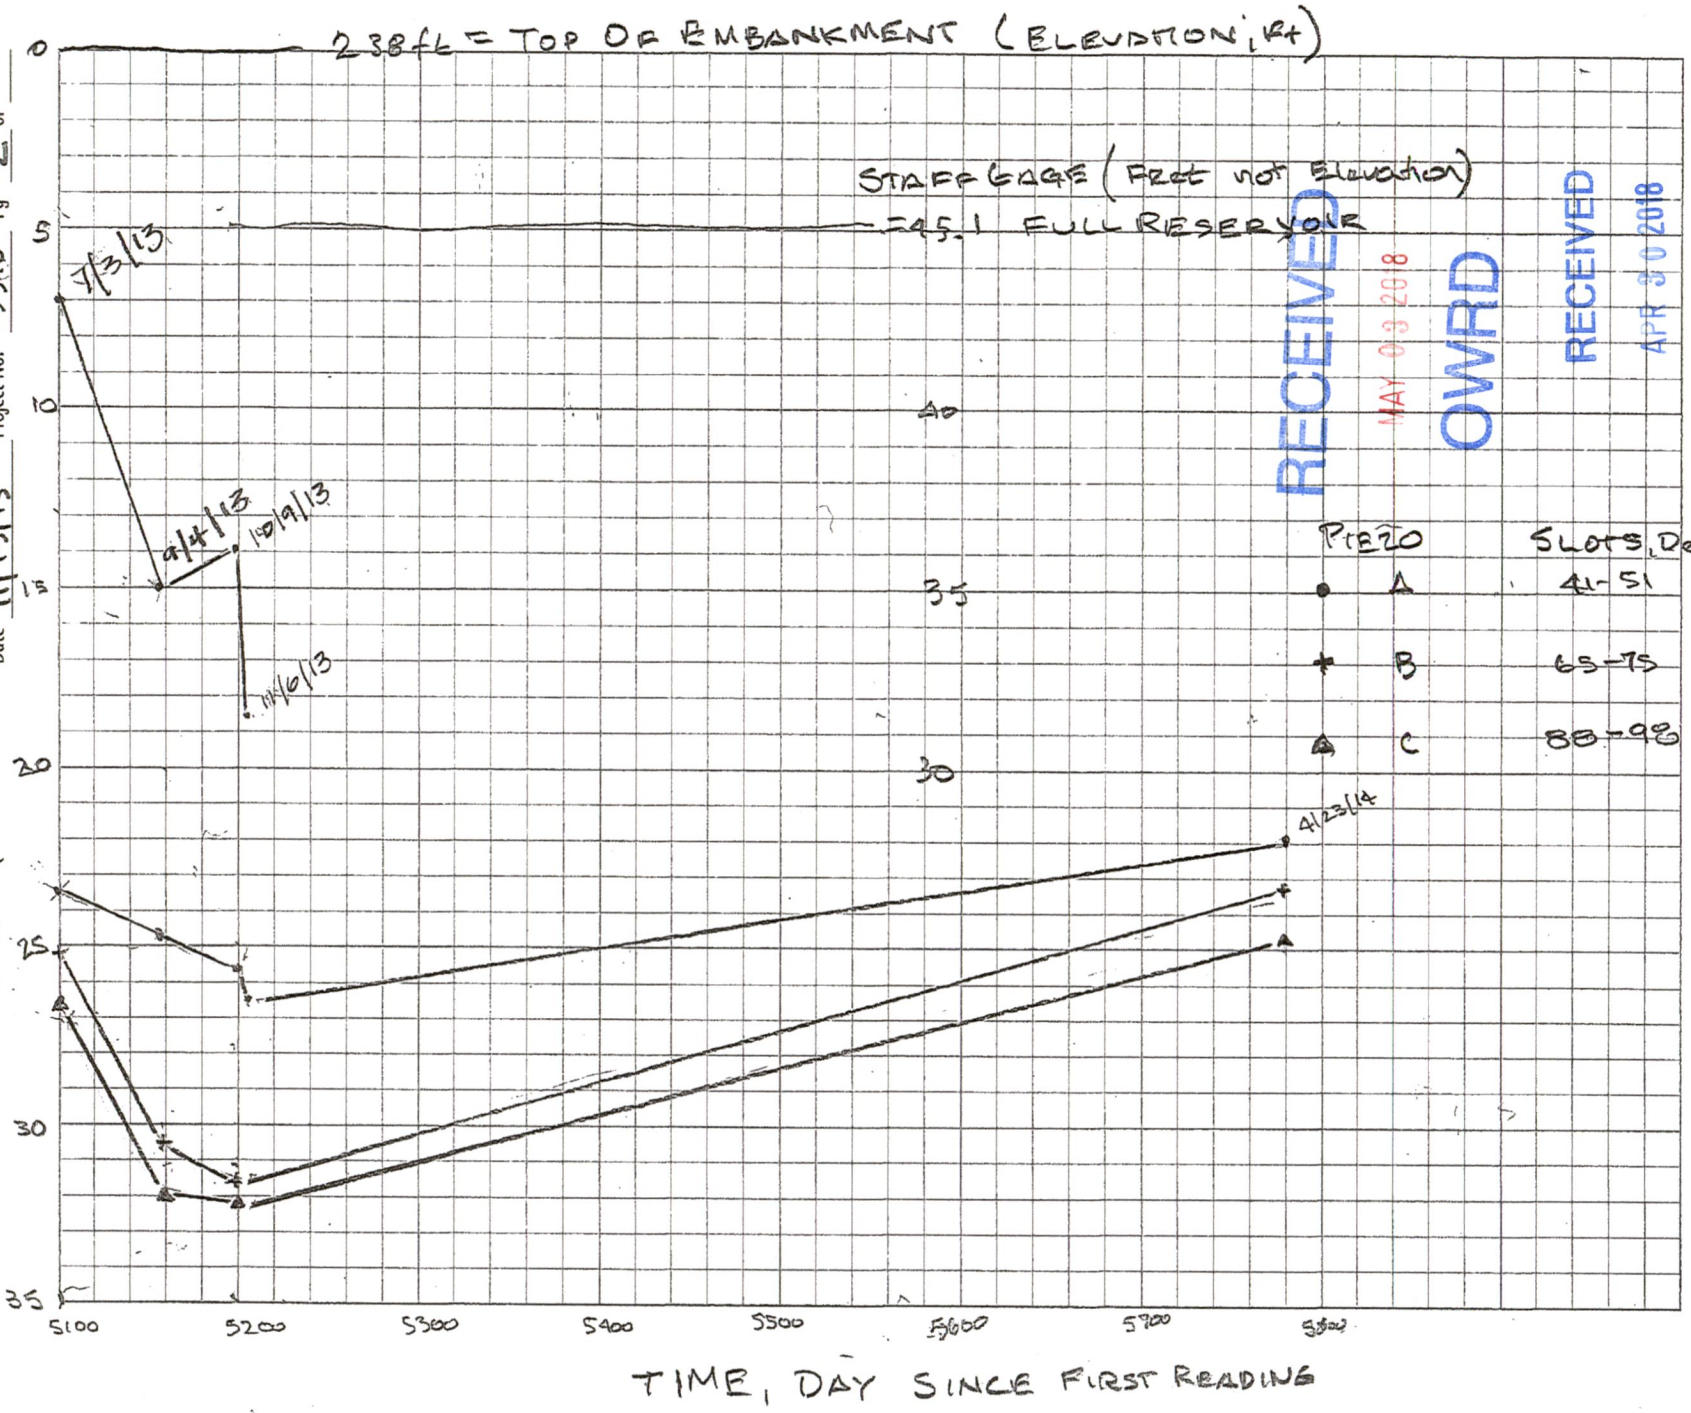 238ft = TOP OF EMBANKMENT (ELEVATION, Ft)
0
STAFF GAGE (Feet not Elevation)
5
=45.1 FULL RESERVOIR
7/3/13
RECEIVED
MAY 03 2018
OWRD
RECEIVED
APR 30 2018
10
40
9/4/13
10/9/13
PIEZO
SLOTS, De
15
35
A
41-51
11/6/13
B
65-75
C
88-98
20
30
4/23/14
25
30
35
5100
5200
5300
5400
5500
5600
5700
5800
TIME, DAY SINCE FIRST READING
Date
Project No.
Pg
2
of